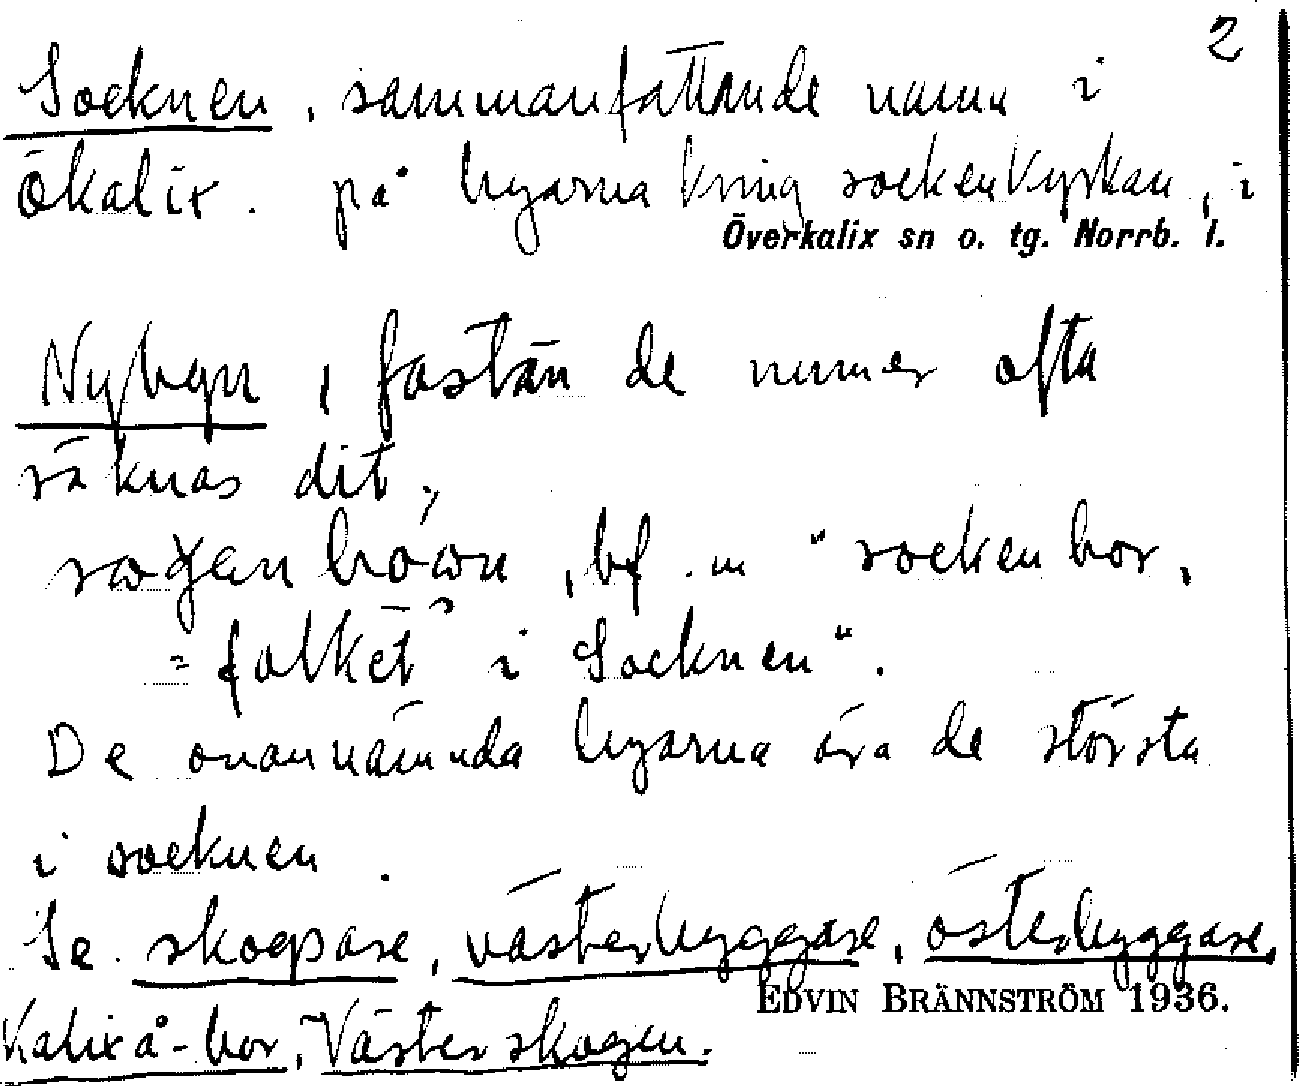 2
Socknen, sammanfattande namn i
Ökalix. på byarna kring sockenkyrkan, i
Överkalix sn o. tg. Norrb. l.
Nybyn, fastän de numer ofta
räknas dit,
bf. m "sockenbor,
= folket i Socknen".
De ovannämnda byarna är de största
i socknen.
Se skogpare, västerbyggare, österbyggare,
EDVIN BRÄNNSTRÖM 1936.
Kalixå-bor, Västerskogen.